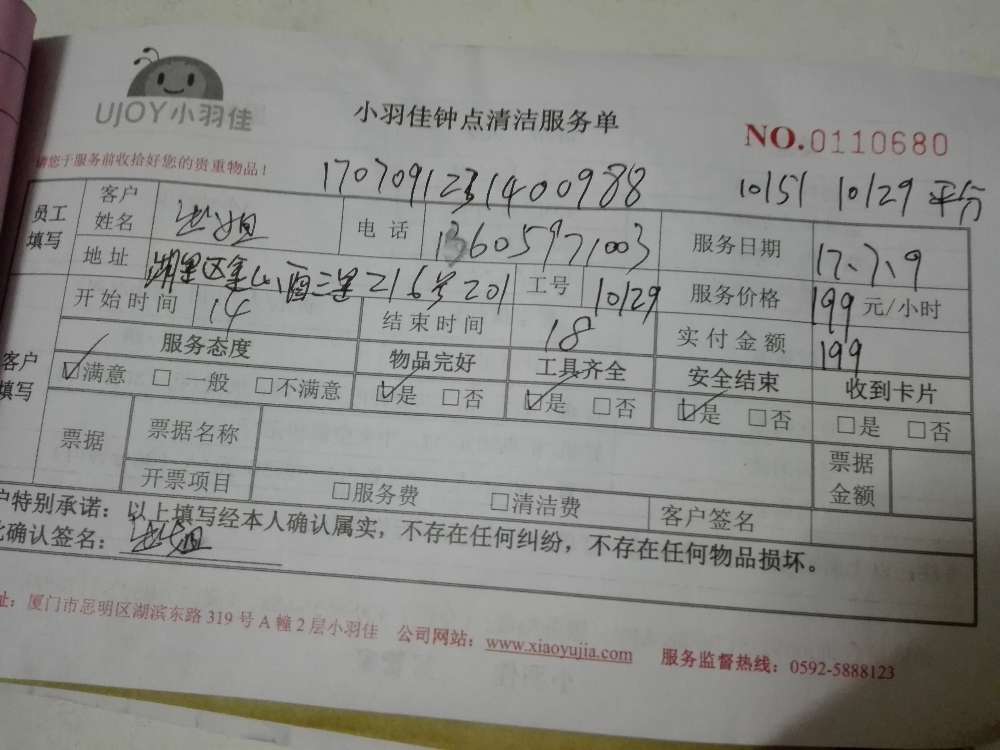 UJOY小羽佳
小羽佳钟点清洁服务单
NO.0110680
请您于服务前收拾好您的贵重物品！
1707091231400988 10151 10129 平分
员工填写 客户姓名 姐 电话 13605971003 服务日期 17、7、9
地址 湖里区金山西三里216号201 工号 10129 服务价格 199 元/小时
开始时间 14 结束时间 18 实付金额 199
客户填写 服务态度 物品完好 工具齐全 安全结束 收到卡片
☑满意 □一般 □不满意 ☑是 □否 ☑是 □否 ☑是 □否 □是 □否
票据 票据名称 票据金额
开票项目 □服务费 □清洁费 客户签名
户特别承诺：以上填写经本人确认属实，不存在任何纠纷，不存在任何物品损坏。
此确认签名： 姐
址：厦门市思明区湖滨东路 319 号 A 幢 2 层小羽佳 公司网站：www.xiaoyujia.com 服务监督热线：0592-5888123